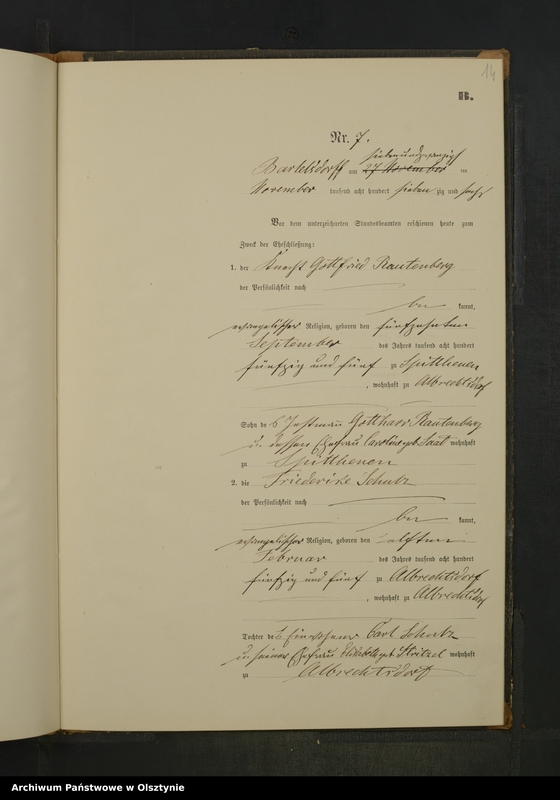 14
B.
Nr. 7.
siebenundzwanzigst
Bartelsdorff am 27 November ten
November tausend acht hundert sieben zig und sechs
Vor dem unterzeichneten Standesbeamten erschienen heute zum
Zweck der Eheschließung:
1. der Knecht Gottfried Rautenberg
der Persönlichkeit nach
be kannt,
evangelischer Religion, geboren den fünfzehnten
September des Jahres tausend acht hundert
fünfzig und fünf zu Spitthenen
, wohnhaft zu Albrechtsdorf
Sohn des Instmann Gotthard Rautenberg
u. dessen Ehefrau Caroline geb. Saat wohnhaft
zu Spitthenen
2. die Friederike Schulz
der Persönlichkeit nach
be kannt,
evangelischer Religion, geboren den elften
Februar des Jahres tausend acht hundert
fünfzig und fünf zu Albrechtsdorf
, wohnhaft zu Albrechtsdorf
Tochter des Einwohners Carl Schulz
u. seiner Ehefrau Elisabeth geb. wohnhaft
zu Albrechtsdorf
Archiwum Państwowe w Olsztynie